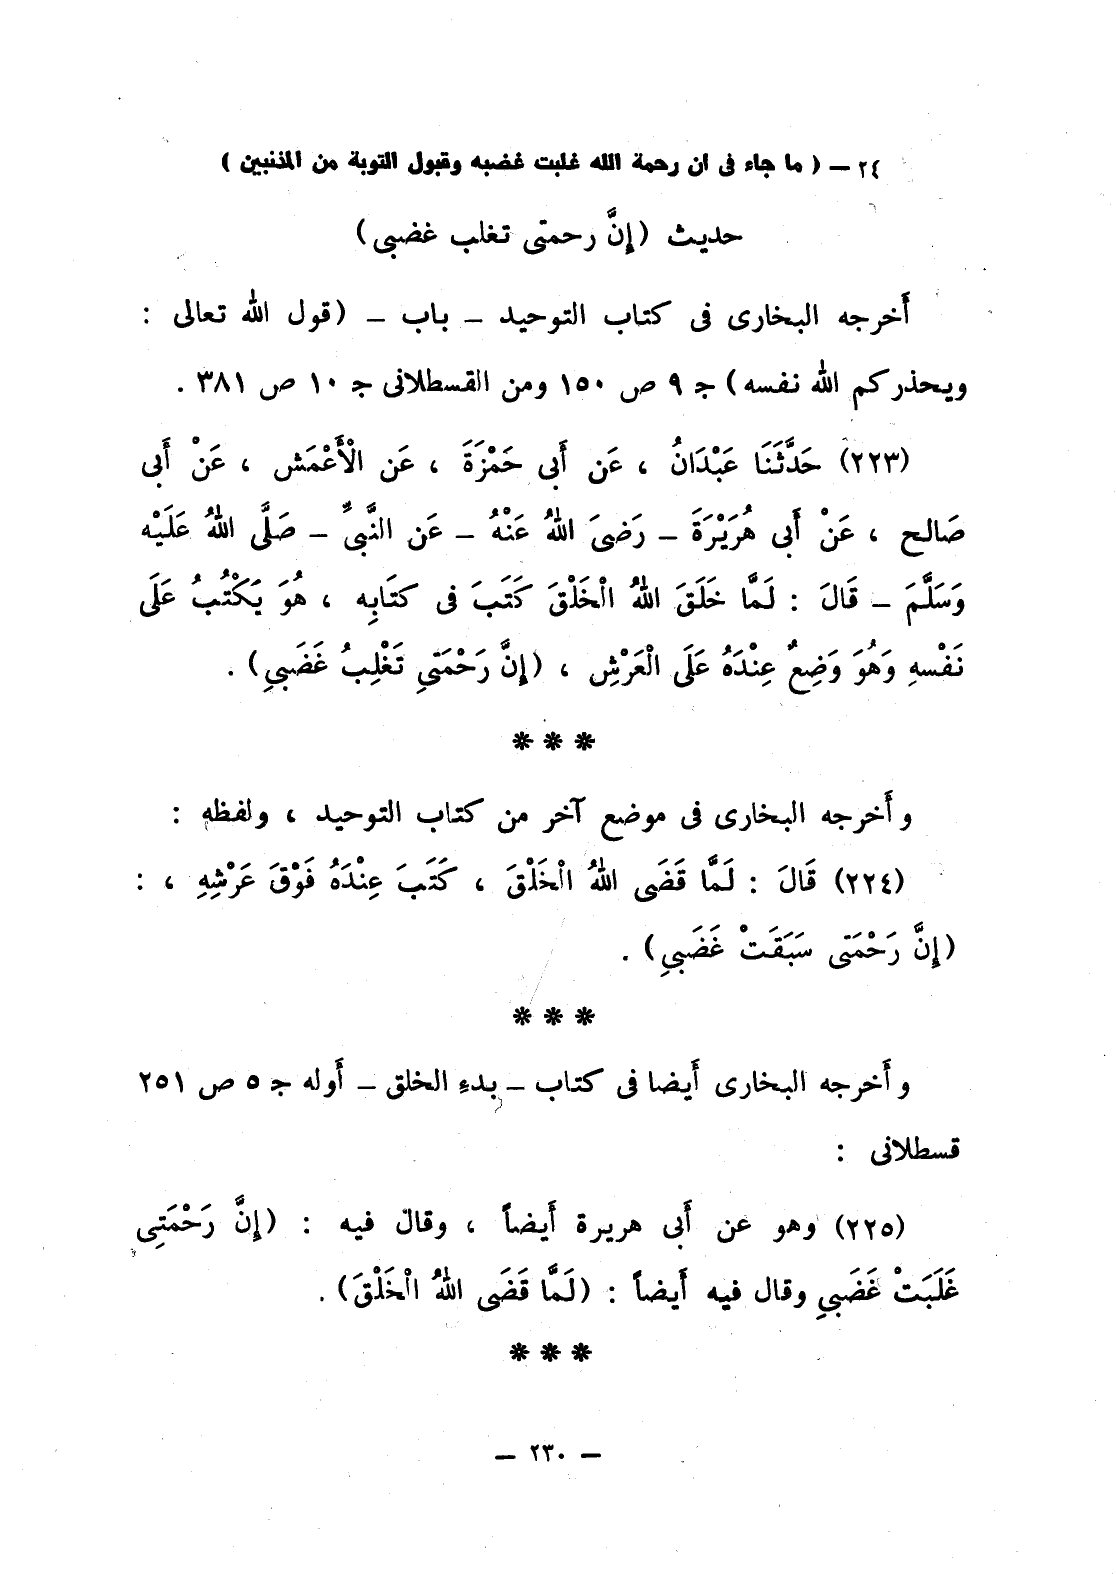 ٢٤ – ( ما جاء فى ان رحمة الله غلبت غضبه وقبول التوبة من المذنبين )
حديث (إنَّ رحمتى تغلب غضبى)
أخرجه البخارى فى كتاب التوحيد – باب – (قول الله تعالى :
ويحذركم الله نفسه) جـ ٩ ص ١٥٠ ومن القسطلانى جـ ١٠ ص ٣٨١ .
(٢٢٣) حَدَّثَنَا عَبْدَانُ ، عَن أَبى حَمْزَةَ ، عَن الْأَعْمَش ، عَنْ أَبى
صَالح ، عَنْ أَبى هُرَيْرَةَ – رَضىَ اللهُ عَنْهُ – عَن النَّبىِّ – صَلَّى اللهُ عَلَيْه
وَسَلَّمَ – قَالَ : لَمَّا خَلَقَ اللهُ الْخَلْقَ كَتَبَ فى كتَابِه ، هُوَ يَكْتُبُ عَلَى
نَفْسهِ وَهُوَ وَضِعٌ عِنْدَهُ عَلَى الْعَرْشِ ، (إِنَّ رَحْمَتىِ تَغْلِبُ غَضَبىِ) .
* * *
وأَخرجه البخارى فى موضع آخر من كتاب التوحيد ، ولفظه :
(٢٢٤) قَالَ : لَمَّا قَضَى اللهُ الْخَلْقَ ، كَتَبَ عِنْدَهُ فَوْقَ عَرْشِهِ ، :
(إِنَّ رَحْمَتى سَبَقَتْ غَضَبىِ) .
* * *
وأَخرجه البخارى أَيضا فى كتاب – بدءِ الخلق – أَوله جـ ٥ ص ٢٥١
قسطلانى :
(٢٢٥) وهو عن أَبى هريرة أَيضاً ، وقال فيه : (إِنَّ رَحْمَتِى
غَلَبَتْ غَضَبىِ وقال فيه أَيضاً : (لَمَّا قَضَى اللهُ الْخَلْقَ) .
* * *
– ٢٣٠ –